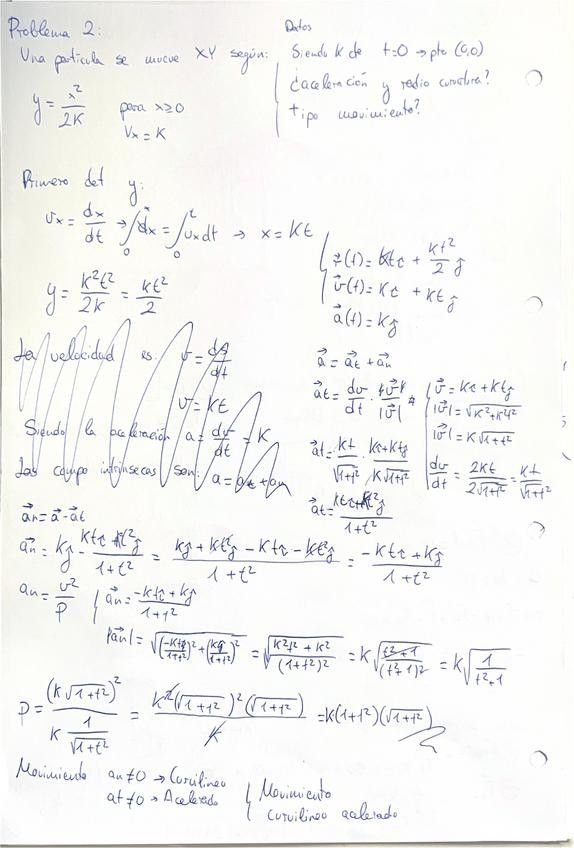 Problema 2:
Una partícula se mueve XY según:
y = x²/2K para x≥0
Vx = K
Datos
Siendo K de t=0 → pto (0,0)
¿aceleración y radio curvatura?
tipo movimiento?
Primero det y:
Vx = dx/dt → ∫₀ˣ dx = ∫₀ᵗ vx dt → x = Kt
y = K²t²/2K = Kt²/2
r⃗(t) = Kt î + Kt²/2 ĵ
v⃗(t) = K î + Kt ĵ
a⃗(t) = K ĵ
La velocidad es: v = ds/dt
v = Kt
Siendo la aceleración a = dv/dt = K
Las compo intrínsecas son: a = at + an
a⃗ = a⃗t + a⃗n
a⃗t = dv/dt · v⃗/|v⃗|
a⃗t = Kt/√1+t² · Kî+Ktĵ/K√1+t²
a⃗t = Ktî+Kt²ĵ/1+t²
v⃗ = Kî + Ktĵ
|v⃗| = √K²+K²t²
|v⃗| = K√1+t²
dv/dt = 2Kt/2√1+t² = Kt/√1+t²
a⃗n = a⃗ - a⃗t
a⃗n = Kĵ - Ktî+Kt²ĵ/1+t² = Kĵ + Kt²ĵ - Ktî - Kt²ĵ/1+t² = -Ktî + Kĵ/1+t²
an = v²/ρ
a⃗n = -Ktî + Kĵ/1+t²
|a⃗n| = √(-Ktĵ/1+t²)²+(Kĵ/1+t²)² = √K²t² + K²/(1+t²)² = K√t²+1/(t²+1)² = K√1/t²+1
ρ = (K√1+t²)²/K 1/√1+t² = K²(√1+t²)²(√1+t²)/K = K(1+t²)(√1+t²)
Movimiento an≠0 → Curvilíneo
at≠0 → Acelerado
Movimiento
curvilíneo acelerado